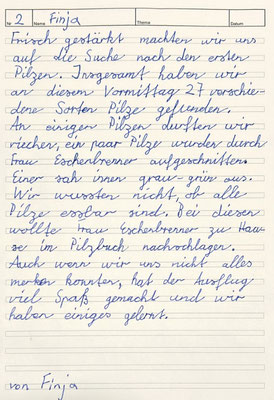 Nr 2 Name Finja Thema Datum
Frisch gestärkt machten wir uns
auf die Suche nach den ersten
Pilzen. Insgesamt haben wir
an diesem Vormittag 27 verschie-
dene Sorten Pilze gefunden.
An einigen Pilzen durften wir
riechen, ein paar Pilze wurden durch
Frau Eschenbrenner aufgeschnitten.
Einer sah innen grau-grün aus.
Wir wussten nicht, ob alle
Pilze essbar sind. Bei diesen
wollte Frau Eschenbrenner zu Hau-
se im Pilzbuch nachschlagen.
Auch wenn wir uns nicht alles
merken konnten, hat der Ausflug
viel Spaß gemacht und wir
haben einiges gelernt.
von Finja